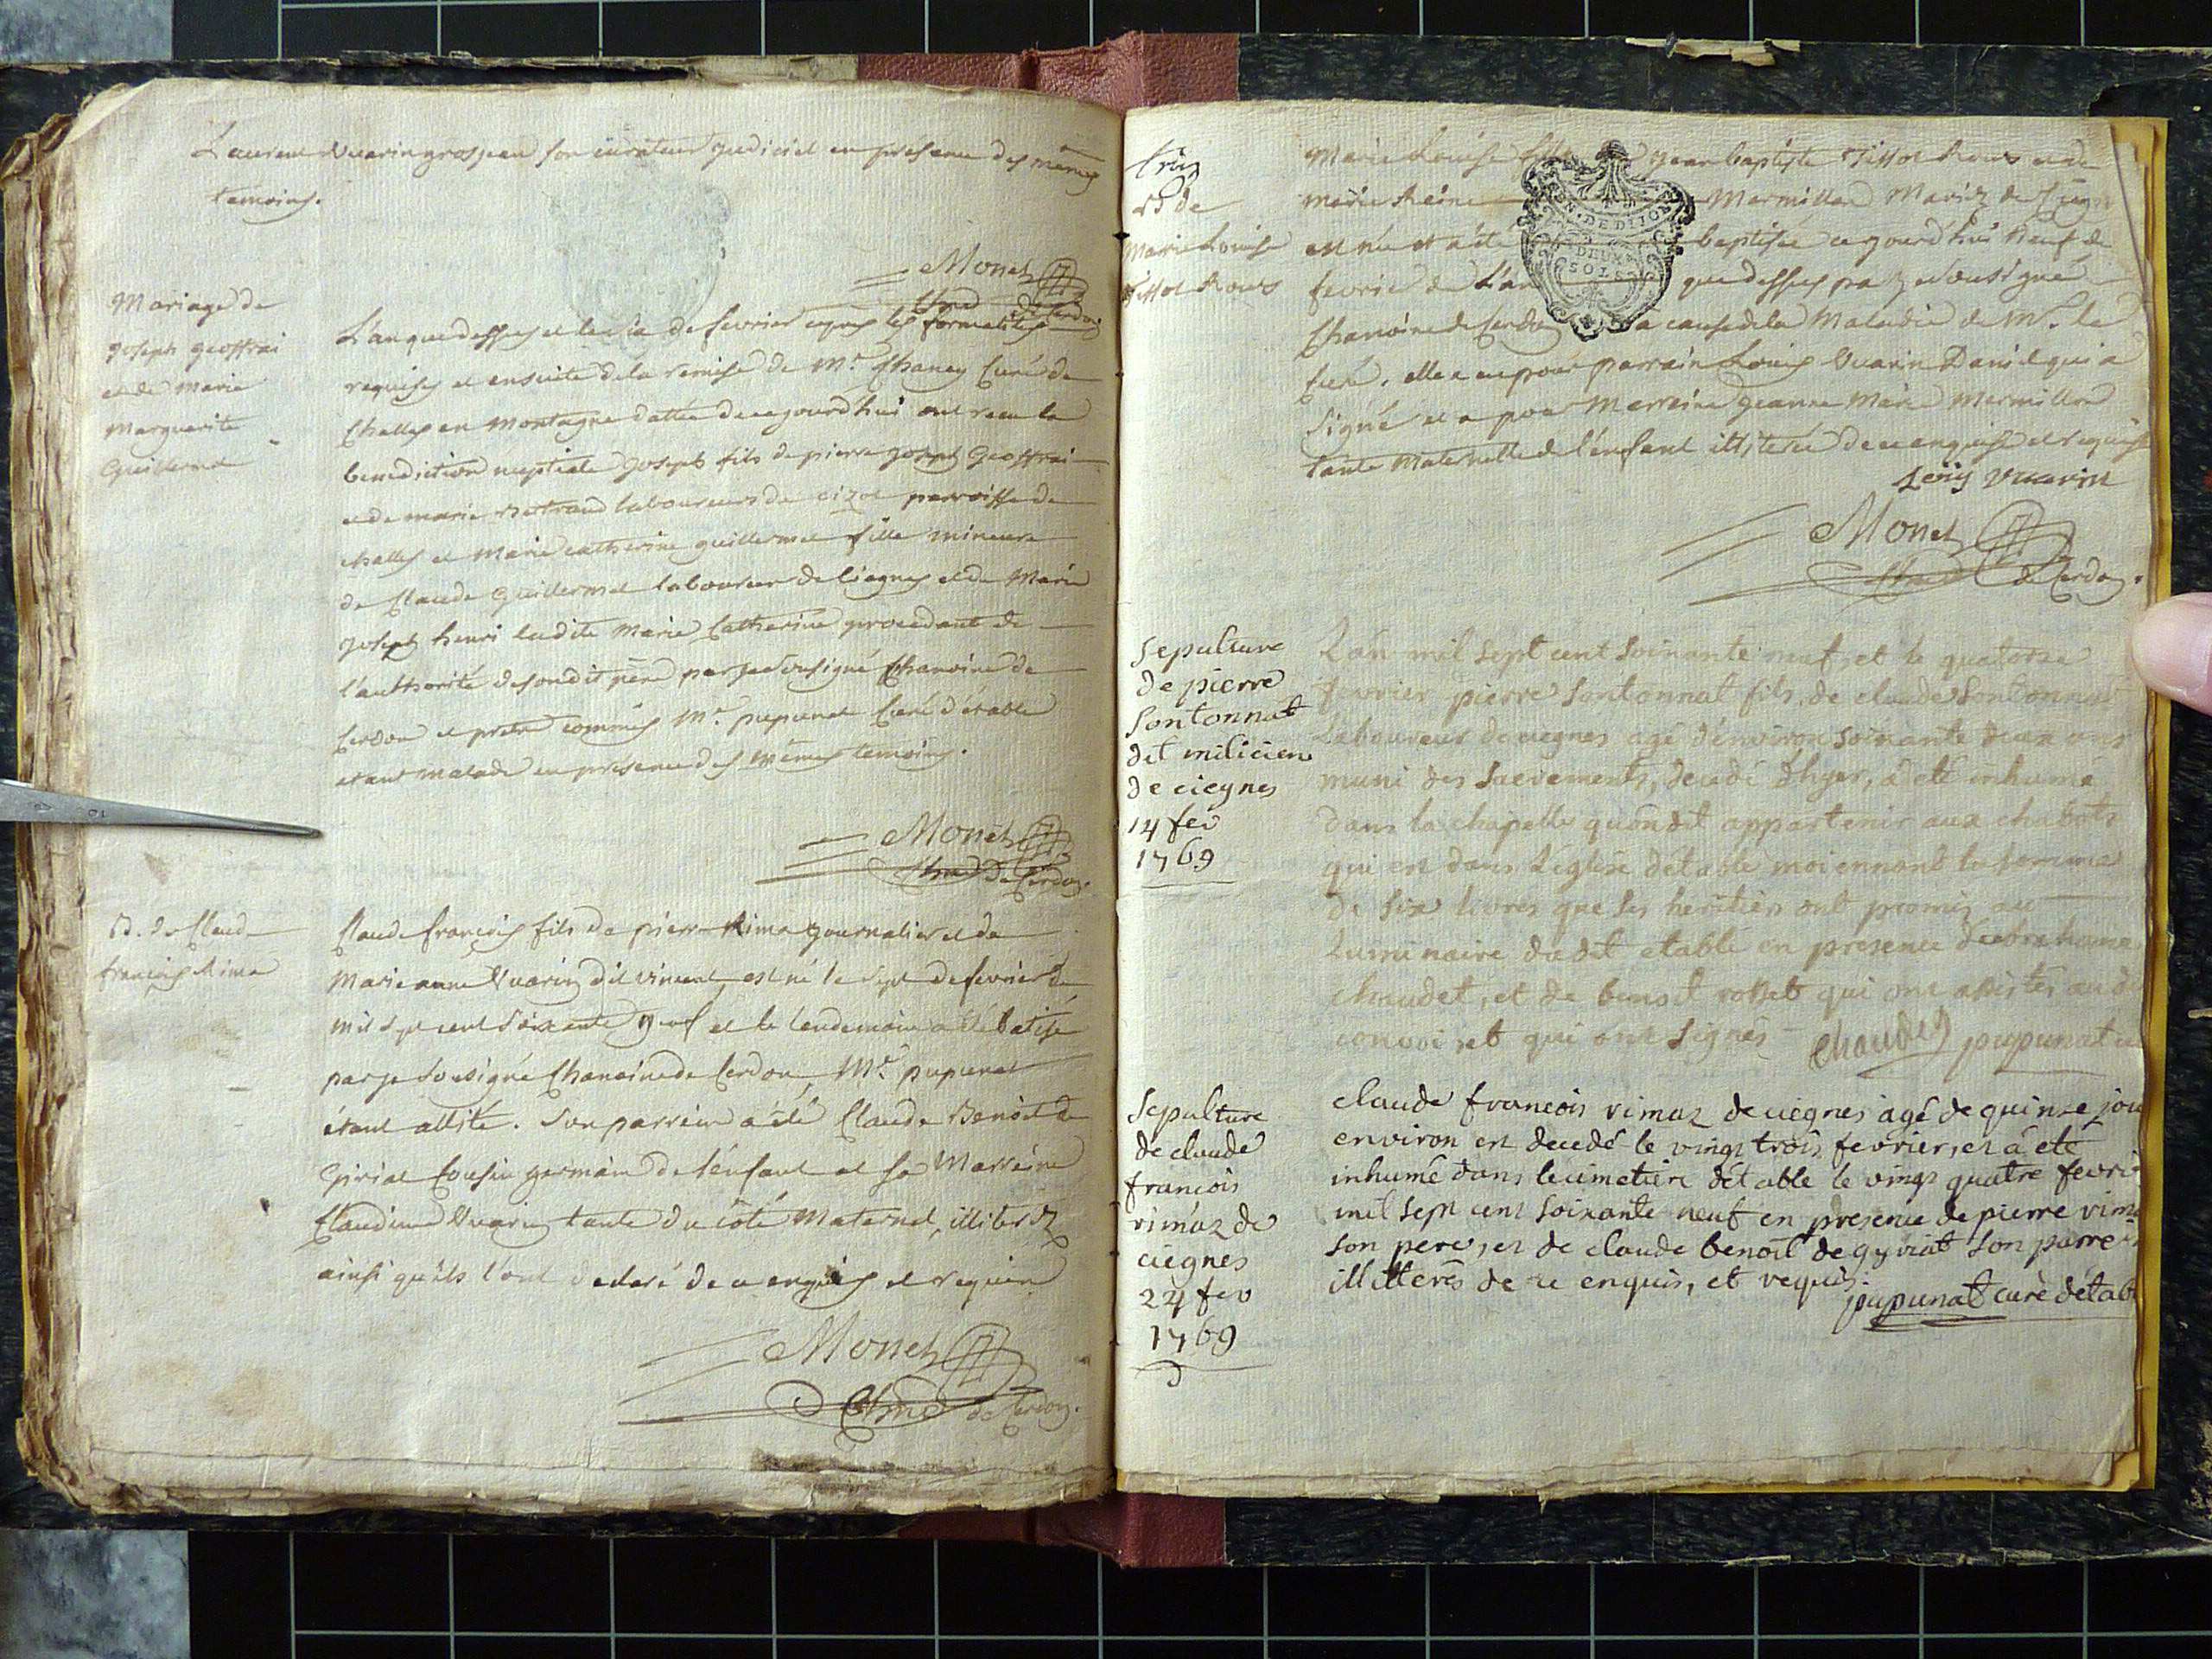 Laurent Vuarin grosjean son curateur judiciel en presence des mêmes
temoins.
Monet
Chne de Cerdon
Mariage de
joseph geoffrai
et de Marie
Marguerite
Guillermet
L'an que dessus et le six de fevrier après les formalités
requises et ensuite de la remise de Mr. Chaney Curé de
Challes en Montagne dattée de cejourd'hui ont recu la
benediction nuptiale joseph fils de pierre joseph Geoffrai
et de marie Bertrand laboureurs de cizod parroisse de
challes et Marie catherine guillermet fille mineure
de Claude Guillermet laboureur de Ciegnes et de Marie
joseph henri ladite Marie Catherine procedante de
l'authorité de son dit père par je sousigné Chanoine de
Cerdon et pretre commis Mr. pupunat Curé d'étable
etant malade en presence des mêmes temoins.
Monet
Chne de Cerdon.
B. de Claude
françois Rima
Claude françois fils de pierre Rima journalier et de
Marie anne Vuarin dit vincent est né le sept de fevrier de
mil sept cent soixante neuf et le lendemain a été batisé
par je sousigné Chanoine de Cerdon, Mr. pupunat
étant allité. Son parrein a été Claude Benoit de
Giriat Cousin germain de l'enfant et sa Marreine
Claudine Vuarin tante du côté Maternel, illiterez
ainsi qu'ils l'ont declaré de ce enquis et requis
Monet
Chne de Cerdon.
B de
Marie Louise
Tissot Roux
Marie Louise fille de jean baptiste Tissot Roux et de
marie Reine Mermillon Mariez de
est née et a été baptisée cejourd'hui neuf de
fevrie de L'an que dessus par je sousigné
Chanoine de Cerdon a cause de la Maladie de Mr. le
Curé, elle a eu pour parrain Louis Vuarin Danil qui a
signé et a pour Marreine jeanne Marie Mermillon
tante Maternelle de l'enfant illiterée de ce enquise et requise
GEN. DE DIJON
DEUX
SOLS
Louis Vuarin
Monet
Chne de Cerdon.
Sepulture
de pierre
sontonnat
dit milicien
de ciegnes
14 fev
1769
L'an mil sept cent soixante neuf, et le quatorze
fevrier pierre sontonnat fils de claude sontonnat
Laboureur de ciegnes agé d'environ soixante deux ans
muni des sacrements, decedé d'hyer, a eté inhumé
dans la chapelle qu'on dit appartenir aux chabots
qui est dans l'eglise d'etable moiennant la somme
de six livres que ses heritiers ont promis au
Luminaire du dit etable en presence d'abrahame
chaudet, et de benoit rosset qui ont assistés au dit
convoi, et qui ont signés chaudet pupunat
Sepulture
de claude
francois
rimaz de
ciegnes
24 fev
1769
claude francois rimaz de ciegnes agé de quinze jou
environ est decedé le vingt trois fevrier, et a été
inhumé dans le cimetiere d'etable le vingt quatre fevri
mil sept cent soixante neuf en presence de pierre rima
son pere, et de claude benoit de gyriat son parre
illitterés de ce enquis, et requis.
pupunat curé détab